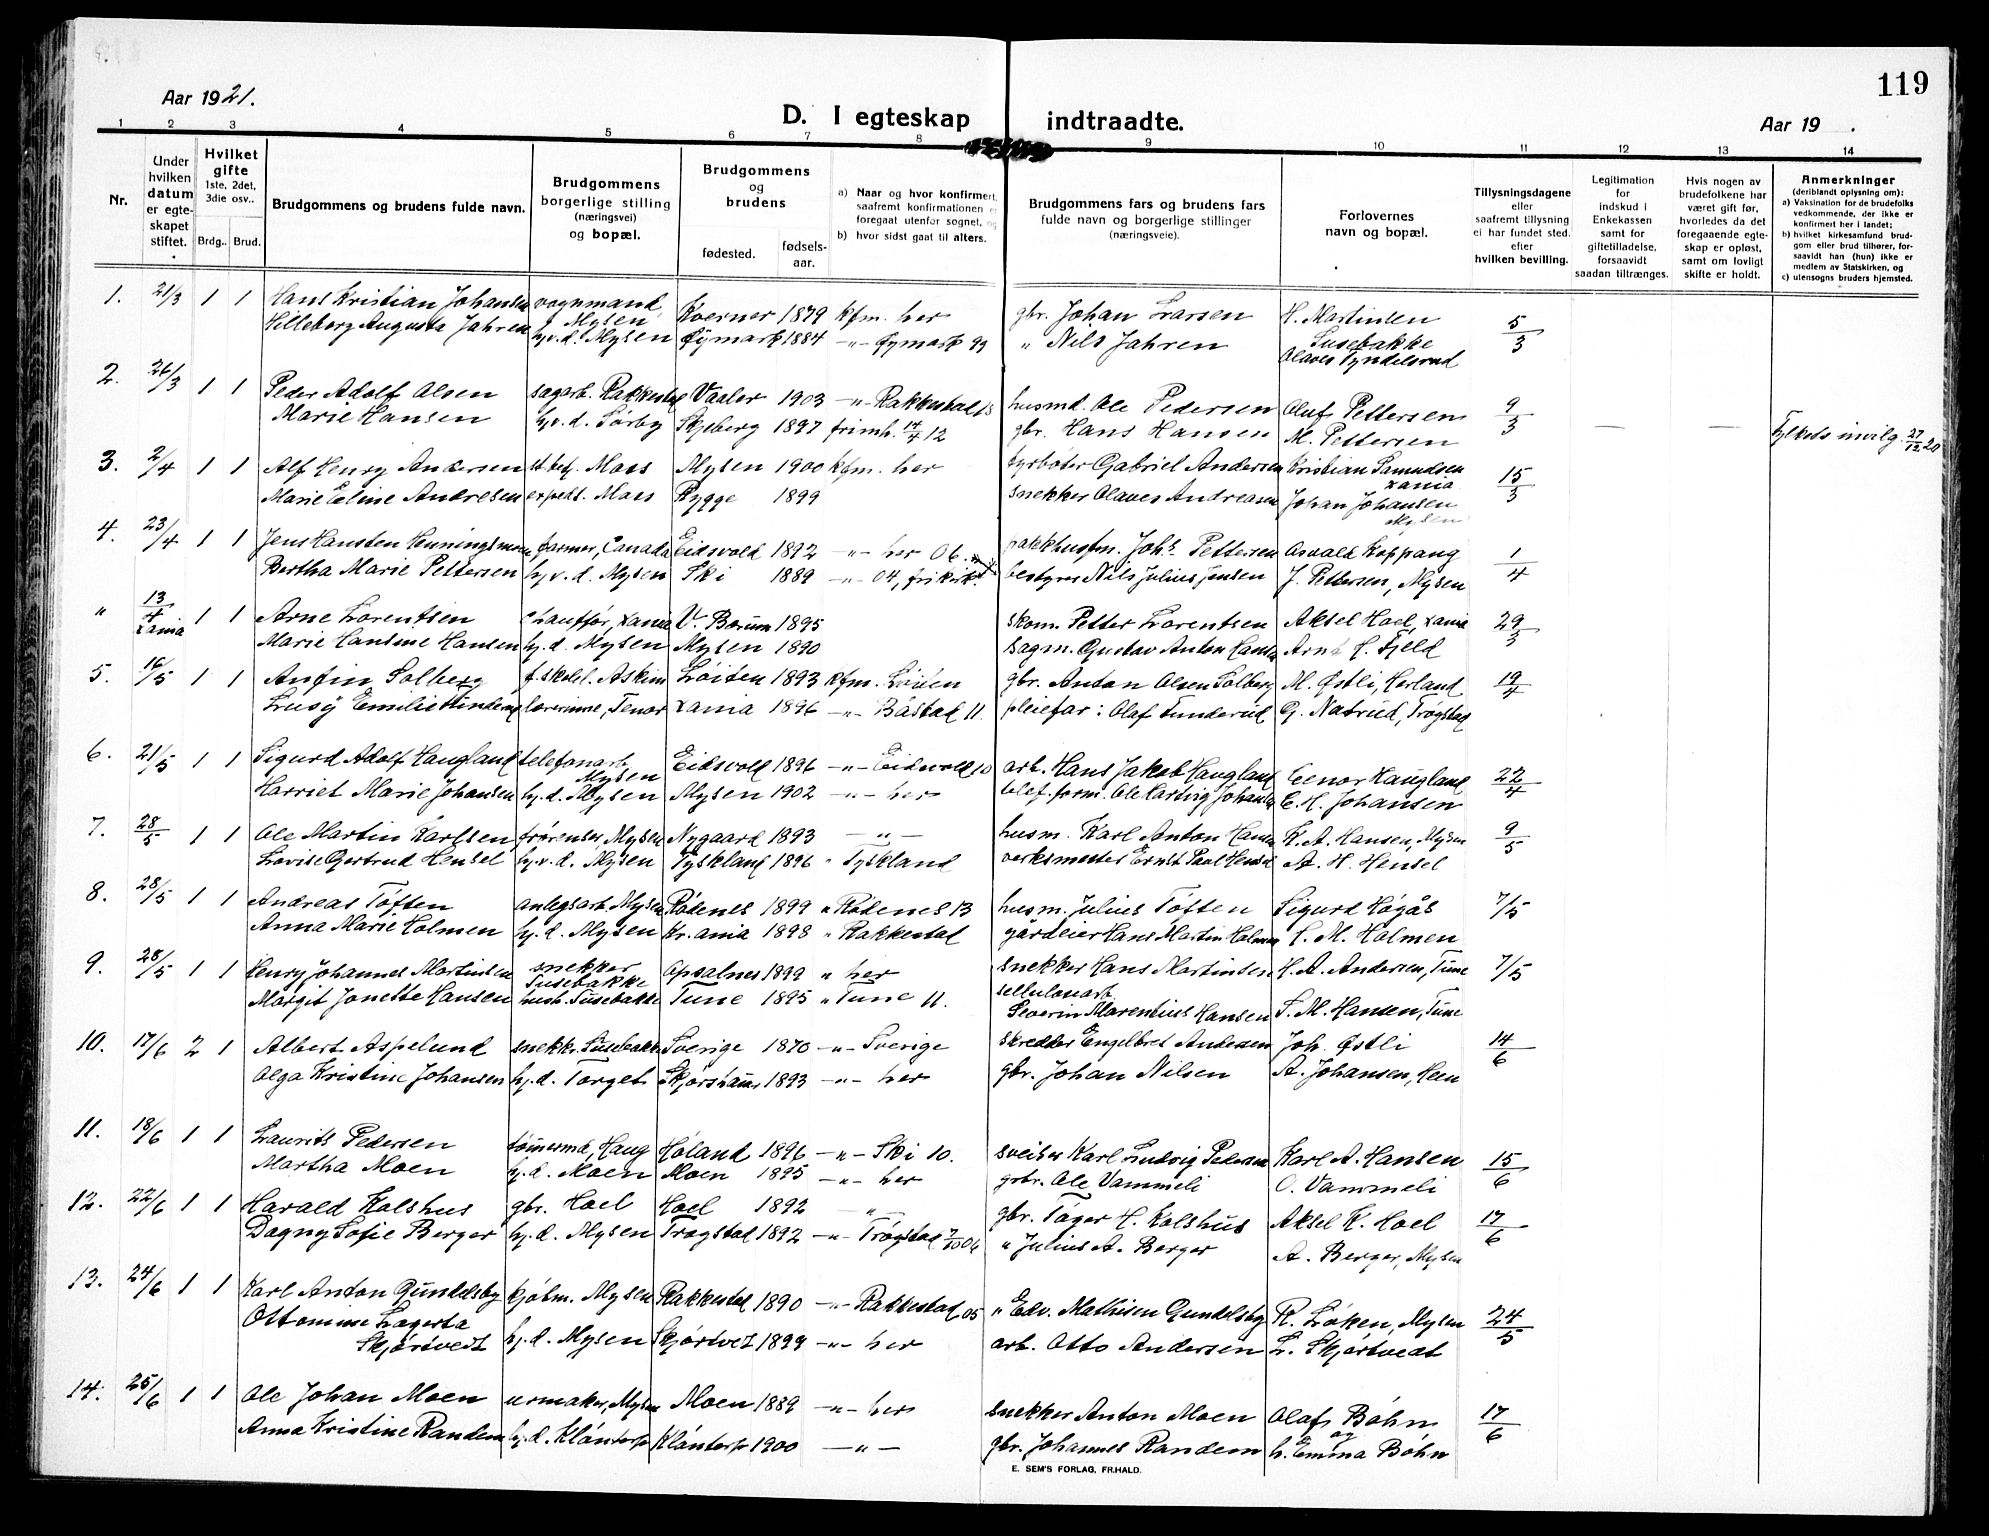 119
Aar 1921.
D. I egteskap indtraadte.
Aar 19 .
1 2 3 4 5 6 7 8 9 10 11 12 13 14
Nr.
Under hvilken datum er egteskapet stiftet.
Hvilket gifte 1ste, 2det, 3die osv.. Brdg.. Brud.
Brudgommens og brudens fulde navn.
Brudgommens borgerlige stilling (næringsvei) og bopæl.
Brudgommens og brudens fødested. fødselsaar.
a) Naar og hvor konfirmert, saafremt konfirmationen er foregaat utenfor sognet, og
b) hvor sidst gaat til alters.
Brudgommens fars og brudens fars fulde navn og borgerlige stillinger (næringsveie).
Forlovernes navn og bopæl.
Tillysningsdagene eller saafremt tillysning ei har fundet sted. efter hvilken bevilling.
Legitimation for indskud i Enkekassen samt for giftetilladelse, forsaavidt saadan tiltrænges.
Hvis nogen av brudefolkene har været gift før, hvorledes da det foregaaende egteskap er opløst, samt om lovligt skifte er holdt.
Anmerkninger (deriblandt oplysning om):
a) Vaksination for de brudefolks vedkommende, der ikke er konfirmert her i landet;
b) hvilket kirkesamfund brudgom eller brud tilhører, forsaavidt han (hun) ikke er medlem av Statskirken, og
c) utensogns bruders hjemsted.
1. 21/3 1 1 Hans Kristian Johansen vognmand, Mysen Kverner 1879 kfm. her gbr. Johan Larsen H. Martinsen Susebakke 5/3
Hilleborg Augusta Jahren hj.v.d. Mysen Øymark 1884 -"- Øymark 99 " Nils Jahren Olaves Tyndelsrud
2. 26/3 1 1 Peder Adolf Olsen sagarb. Rakkestad Vaaler 1903 -"- Rakkestad 18 husmd. Ole Pedersen Oluf Pettersen 9/3 — — Fylkets invilg. 27/12 20
Marie Hansen hj.v.d. Sørby Skjeberg 1897 frimh. 14/4 12 gbr. Hans Hansen M. Pettersen
3. 2/4 1 1 Alf Henry Andersen st.betj. Moss Mysen 1900 kfm. her fyrbøter Gabriel Andersen Kristian Samuelsen xania 15/3
Marie Eeline Andresen exped. Moss Rygge 1899 snekker Olaves Andreasen Johan Johansen Mysen
4. 23/4 1 1 Jens Hansten Henningsmoen farmer, Canada Eidsvold 1892 -"- her 06. pakkhusfm. Johs. Pettersen Osvald Koppang 1/4
Bertha Marie Pettersen hj.v.d. Mysen Ski 1889 -"- 04, frikirk. bestyrer Nils Julius Jensen J. Pettersen, Mysen
" 13/4 xania 1 1 Arne Lorentsen chauffør, xania V. Bærum 1895 skom. Petter Lorentsen Aksel Hoel, xania 29/3
Marie Hansine Hansen hj.d. Mysen Mysen 1890 sagm. Gustav Anton Hansen Arnt H. Fjeld
5. 16/5 1 1 Anfin Solberg f. skolel. Askim Løiten 1893 kfm. Løiten gbr. Anton Olsen Solberg M. Østli, Hærland 19/4
Lusy Emilie Tunderud lærerinne, Tenor xania 1896 -"- Båstad 11. pleiefar: Olaf Tunderud G. Natrud, Trøgstad
6. 21/5 1 1 Sigurd Adolf Haugland telefonarb. Mysen Eidsvold 1896 -"- Eidsvold 10 arb. Hans Jakob Haugland Eenar Haugland 22/4
Harriet Marie Johansen hj.d. Mysen Mysen 1902 -"- her telef.form. Ole Hartvig Johansen E. H. Johansen
7. 28/5 1 1 Ole Martin Karlsen frørenser, Mysen Nygaard 1893 -"- husm. Karl Anton Hansen K. A. Hansen, Mysen 9/5
Lovise Gertrud Hensel hj.v.d. Mysen Tyskland 1896 " Tyskland verksmester Ernst Paul Hensel A. H. Hensel
8. 28/5 1 1 Andreas Tøften anlegsarb. Mysen Rødenes 1899 " Rødenes 13 husm. Julius Tøften Sigurd Høgås 7/5
Anna Marie Holmen hj.d. Mysen Kr.ania 1898 " Rakkestad gårdeier Hans Martin Holmen S. M. Holmen
9. 28/5 1 1 Henry Johannes Martinsen snekker Susebakke Opsalnes 1899 " her snekker Hans Martinsen H. A. Andersen, Tune 7/5
Margit Jonette Hansen hush. Susebakke Tune 1895 " Tune 11. sellulosearb. Severin Marentius Hansen S. M. Hansen, Tune
10. 17/6 2 1 Albert Aspelund snekkr. Susebakke Sverige 1870 -"- Sverige skredder Engelbret Andersen Joh. Østli 14/6
Olga Kristine Johansen hj.d. Torget Skjørshaug 1893 -"- her gbr. Johan Nilsen A. Johansen, Heen
11. 18/6 1 1 Laurits Pedersen tømermd, Haug Høland 1896 -"- Ski 10. sveiser Karl Ludvig Pedersen Karl A. Hansen 15/6
Martha Moen hj.d. Moen Moen 1895 -"- her grbr. Ole Vammeli O. Vammeli
12. 22/6 1 1 Harald Kolshus gbr. Hoel Hoel 1892 -"- gbr. Tøger H. Kolshus Aksel K. Hoel 17/6
Dagny Sofie Berger hj.d. Mysen Trøgstad 1892 -"- Trøgstad 7/10 06 " Julius A. Berger A. Berger, Mysen
13. 24/6 1 1 Karl Anton Gundelsby kjøbm. Mysen Rakkestad 1890 -"- Rakkestad 05 " Edv. Mathisen Gundelsby R. Løken, Mysen 24/5
Ottomine Lagerta Skjørtvedt hj.d. Mysen Skjørtvet 1899 -"- her arb. Otto Andersen L. Skjørtvedt
14. 25/6 1 1 Ole Johan Moen urmaker, Mysen Moen 1889 -"- her snekker Anton Moen Olaf Bøhn 17/6
Anna Kristine Randem hj.d. Kløntorp Kløntorp 1900 -"- gbr. Johannes Randem og h. Emma Bøhn
E. SEM'S FORLAG, FR.HALD.